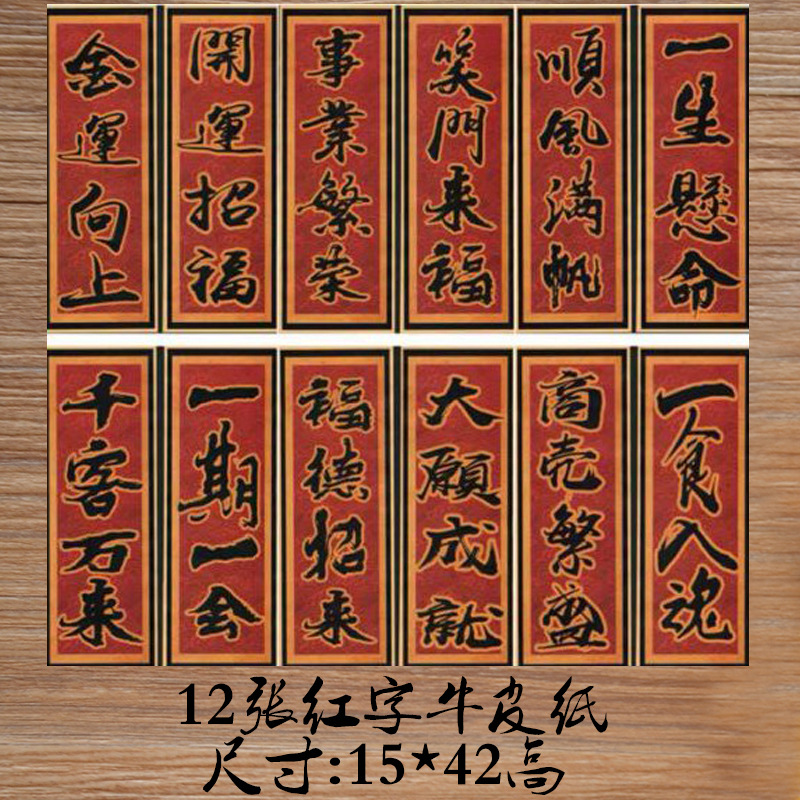 金運向上
開運招福
事業繁榮
笑門来福
順風満帆
一生懸命
千客万来
一期一会
福德招来
大願成就
商売繁盛
一食入魂
12张红字牛皮纸
尺寸:15*42高